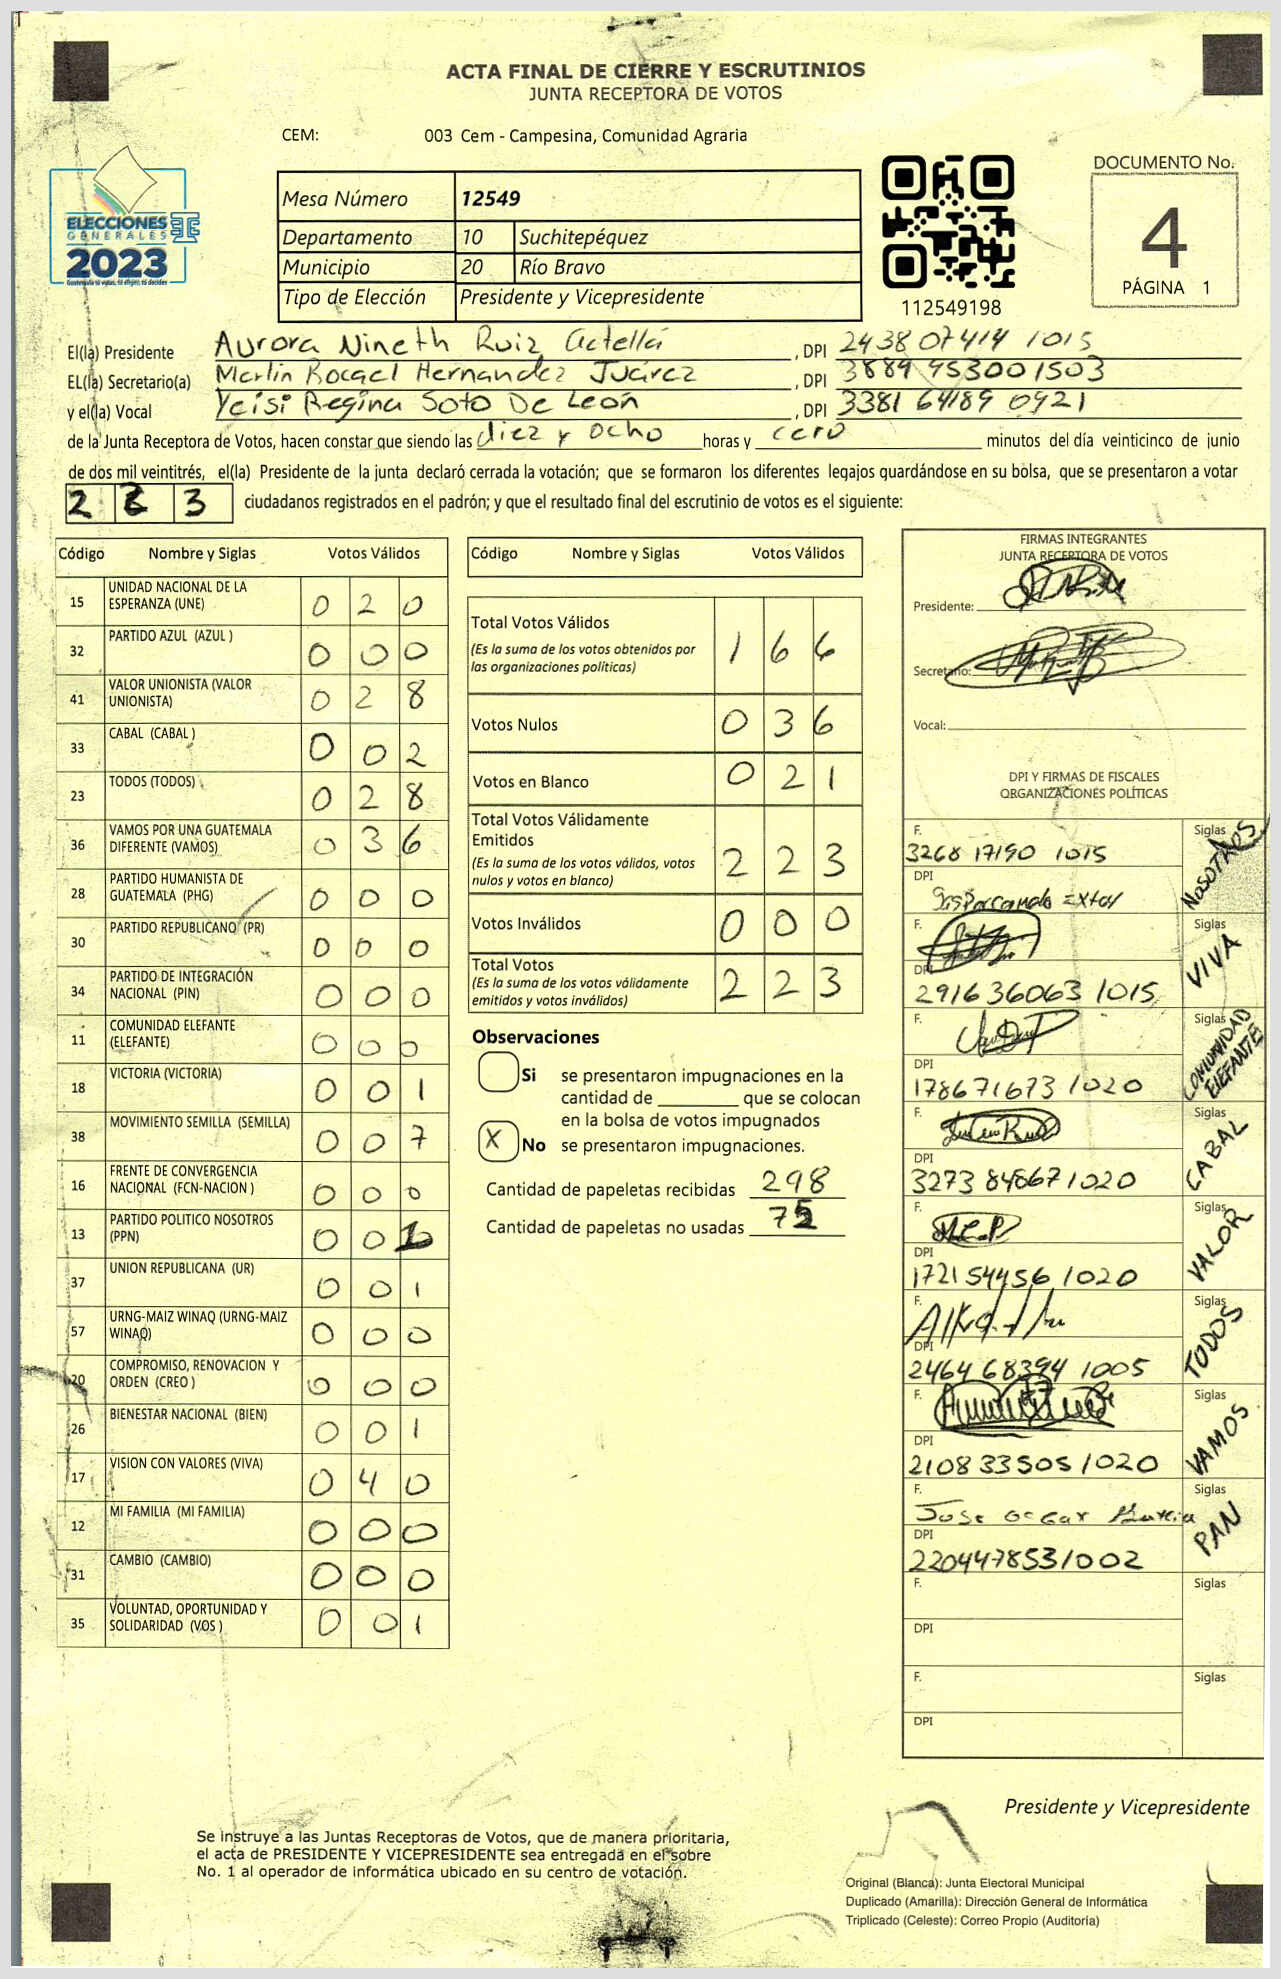 ACTA FINAL DE CIERRE Y ESCRUTINIOS
JUNTA RECEPTORA DE VOTOS
CEM: 003 Cem - Campesina, Comunidad Agraria
ELECCIONES
GENERALES
2023
Guatemala tú votas, tú eliges, tú decides
Mesa Número 12549
Departamento 10 Suchitepéquez
Municipio 20 Río Bravo
Tipo de Elección Presidente y Vicepresidente
112549198
DOCUMENTO No.
4
PÁGINA 1
El(la) Presidente Aurora Nineth Ruiz , DPI 2438 07414 1015
EL(la) Secretario(a) Marlin Rocael Hernandez Juárez , DPI 3889 953001503
y el(la) Vocal Yeisi Regina Soto De León , DPI 3381 64189 0921
de la Junta Receptora de Votos, hacen constar que siendo las diez y ocho horas y cero minutos del día veinticinco de junio
de dos mil veintitrés, el(la) Presidente de la junta declaró cerrada la votación; que se formaron los diferentes legajos guardándose en su bolsa, que se presentaron a votar
2 2 3 ciudadanos registrados en el padrón; y que el resultado final del escrutinio de votos es el siguiente:
Código Nombre y Siglas Votos Válidos
15 UNIDAD NACIONAL DE LA ESPERANZA (UNE) 0 2 0
32 PARTIDO AZUL (AZUL ) 0 0 0
41 VALOR UNIONISTA (VALOR UNIONISTA) 0 2 8
33 CABAL (CABAL ) 0 0 2
23 TODOS (TODOS) 0 2 8
36 VAMOS POR UNA GUATEMALA DIFERENTE (VAMOS) 0 3 6
28 PARTIDO HUMANISTA DE GUATEMALA (PHG) 0 0 0
30 PARTIDO REPUBLICANO (PR) 0 0 0
34 PARTIDO DE INTEGRACIÓN NACIONAL (PIN) 0 0 0
11 COMUNIDAD ELEFANTE (ELEFANTE) 0 0 0
18 VICTORIA (VICTORIA) 0 0 1
38 MOVIMIENTO SEMILLA (SEMILLA) 0 0 7
16 FRENTE DE CONVERGENCIA NACIONAL (FCN-NACION ) 0 0 0
13 PARTIDO POLITICO NOSOTROS (PPN) 0 0 1
37 UNION REPUBLICANA (UR) 0 0 1
57 URNG-MAIZ WINAQ (URNG-MAIZ WINAQ) 0 0 0
20 COMPROMISO, RENOVACION Y ORDEN (CREO ) 0 0 0
26 BIENESTAR NACIONAL (BIEN) 0 0 1
17 VISION CON VALORES (VIVA) 0 4 0
12 MI FAMILIA (MI FAMILIA) 0 0 0
31 CAMBIO (CAMBIO) 0 0 0
35 VOLUNTAD, OPORTUNIDAD Y SOLIDARIDAD (VOS ) 0 0 1
Código Nombre y Siglas Votos Válidos
Total Votos Válidos 1 6 6
(Es la suma de los votos obtenidos por
las organizaciones políticas)
Votos Nulos 0 3 6
Votos en Blanco 0 2 1
Total Votos Válidamente
Emitidos 2 2 3
(Es la suma de los votos válidos, votos
nulos y votos en blanco)
Votos Inválidos 0 0 0
Total Votos 2 2 3
(Es la suma de los votos válidamente
emitidos y votos inválidos)
Observaciones
Si se presentaron impugnaciones en la
cantidad de ________ que se colocan
en la bolsa de votos impugnados
X No se presentaron impugnaciones.
Cantidad de papeletas recibidas 298
Cantidad de papeletas no usadas 75
FIRMAS INTEGRANTES
JUNTA RECEPTORA DE VOTOS
Presidente:
Secretario:
Vocal:
DPI Y FIRMAS DE FISCALES
ORGANIZACIONES POLÍTICAS
F. Siglas NOSOTROS
3268 17190 1015
DPI
F. Siglas VIVA
DPI
2916 36063 1015
F. Siglas COMUNIDAD ELEFANTE
DPI
178671673 1020
F. Siglas CABAL
DPI
3273 848671020
F. Siglas VALOR
DPI
172154456 1020
F. Siglas TODOS
DPI
2464 68394 1005
F. Siglas VAMOS
DPI
2108 33505 1020
F. Siglas PAN
Jose Oscar
DPI
2204478531002
F. Siglas
DPI
F. Siglas
DPI
Presidente y Vicepresidente
Se instruye a las Juntas Receptoras de Votos, que de manera prioritaria,
el acta de PRESIDENTE Y VICEPRESIDENTE sea entregada en el sobre
No. 1 al operador de informática ubicado en su centro de votación.
Original (Blanca): Junta Electoral Municipal
Duplicado (Amarilla): Dirección General de Informática
Triplicado (Celeste): Correo Propio (Auditoría)